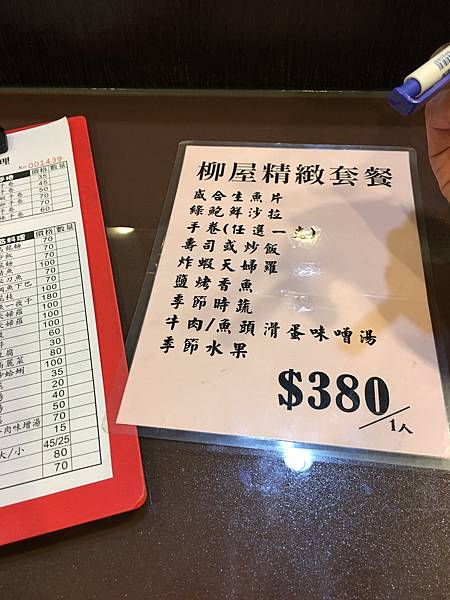 柳屋精緻套餐
盛合生魚片
綜鮑鮮沙拉
手卷(任選一)
壽司或炒飯
炸蝦天婦羅
鹽烤香魚
季節時蔬
牛肉/魚頭滑蛋味噌湯
季節水果
$380/1人
理
No 001439
價格 數量
35
45
50
70
60
價格 數量
70
70
100
70
70
100
180
100
100
60
30
80
100
35
20
40
50
70
肉味增湯 15
大/小 45/25
80
70